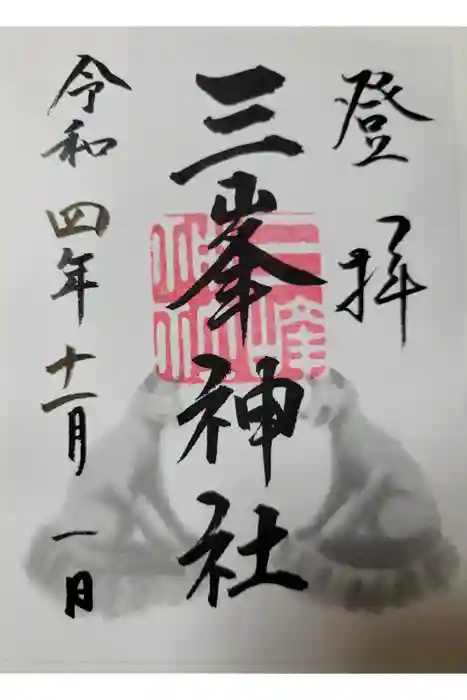 登拝
三峯神社
令和四年十一月一日